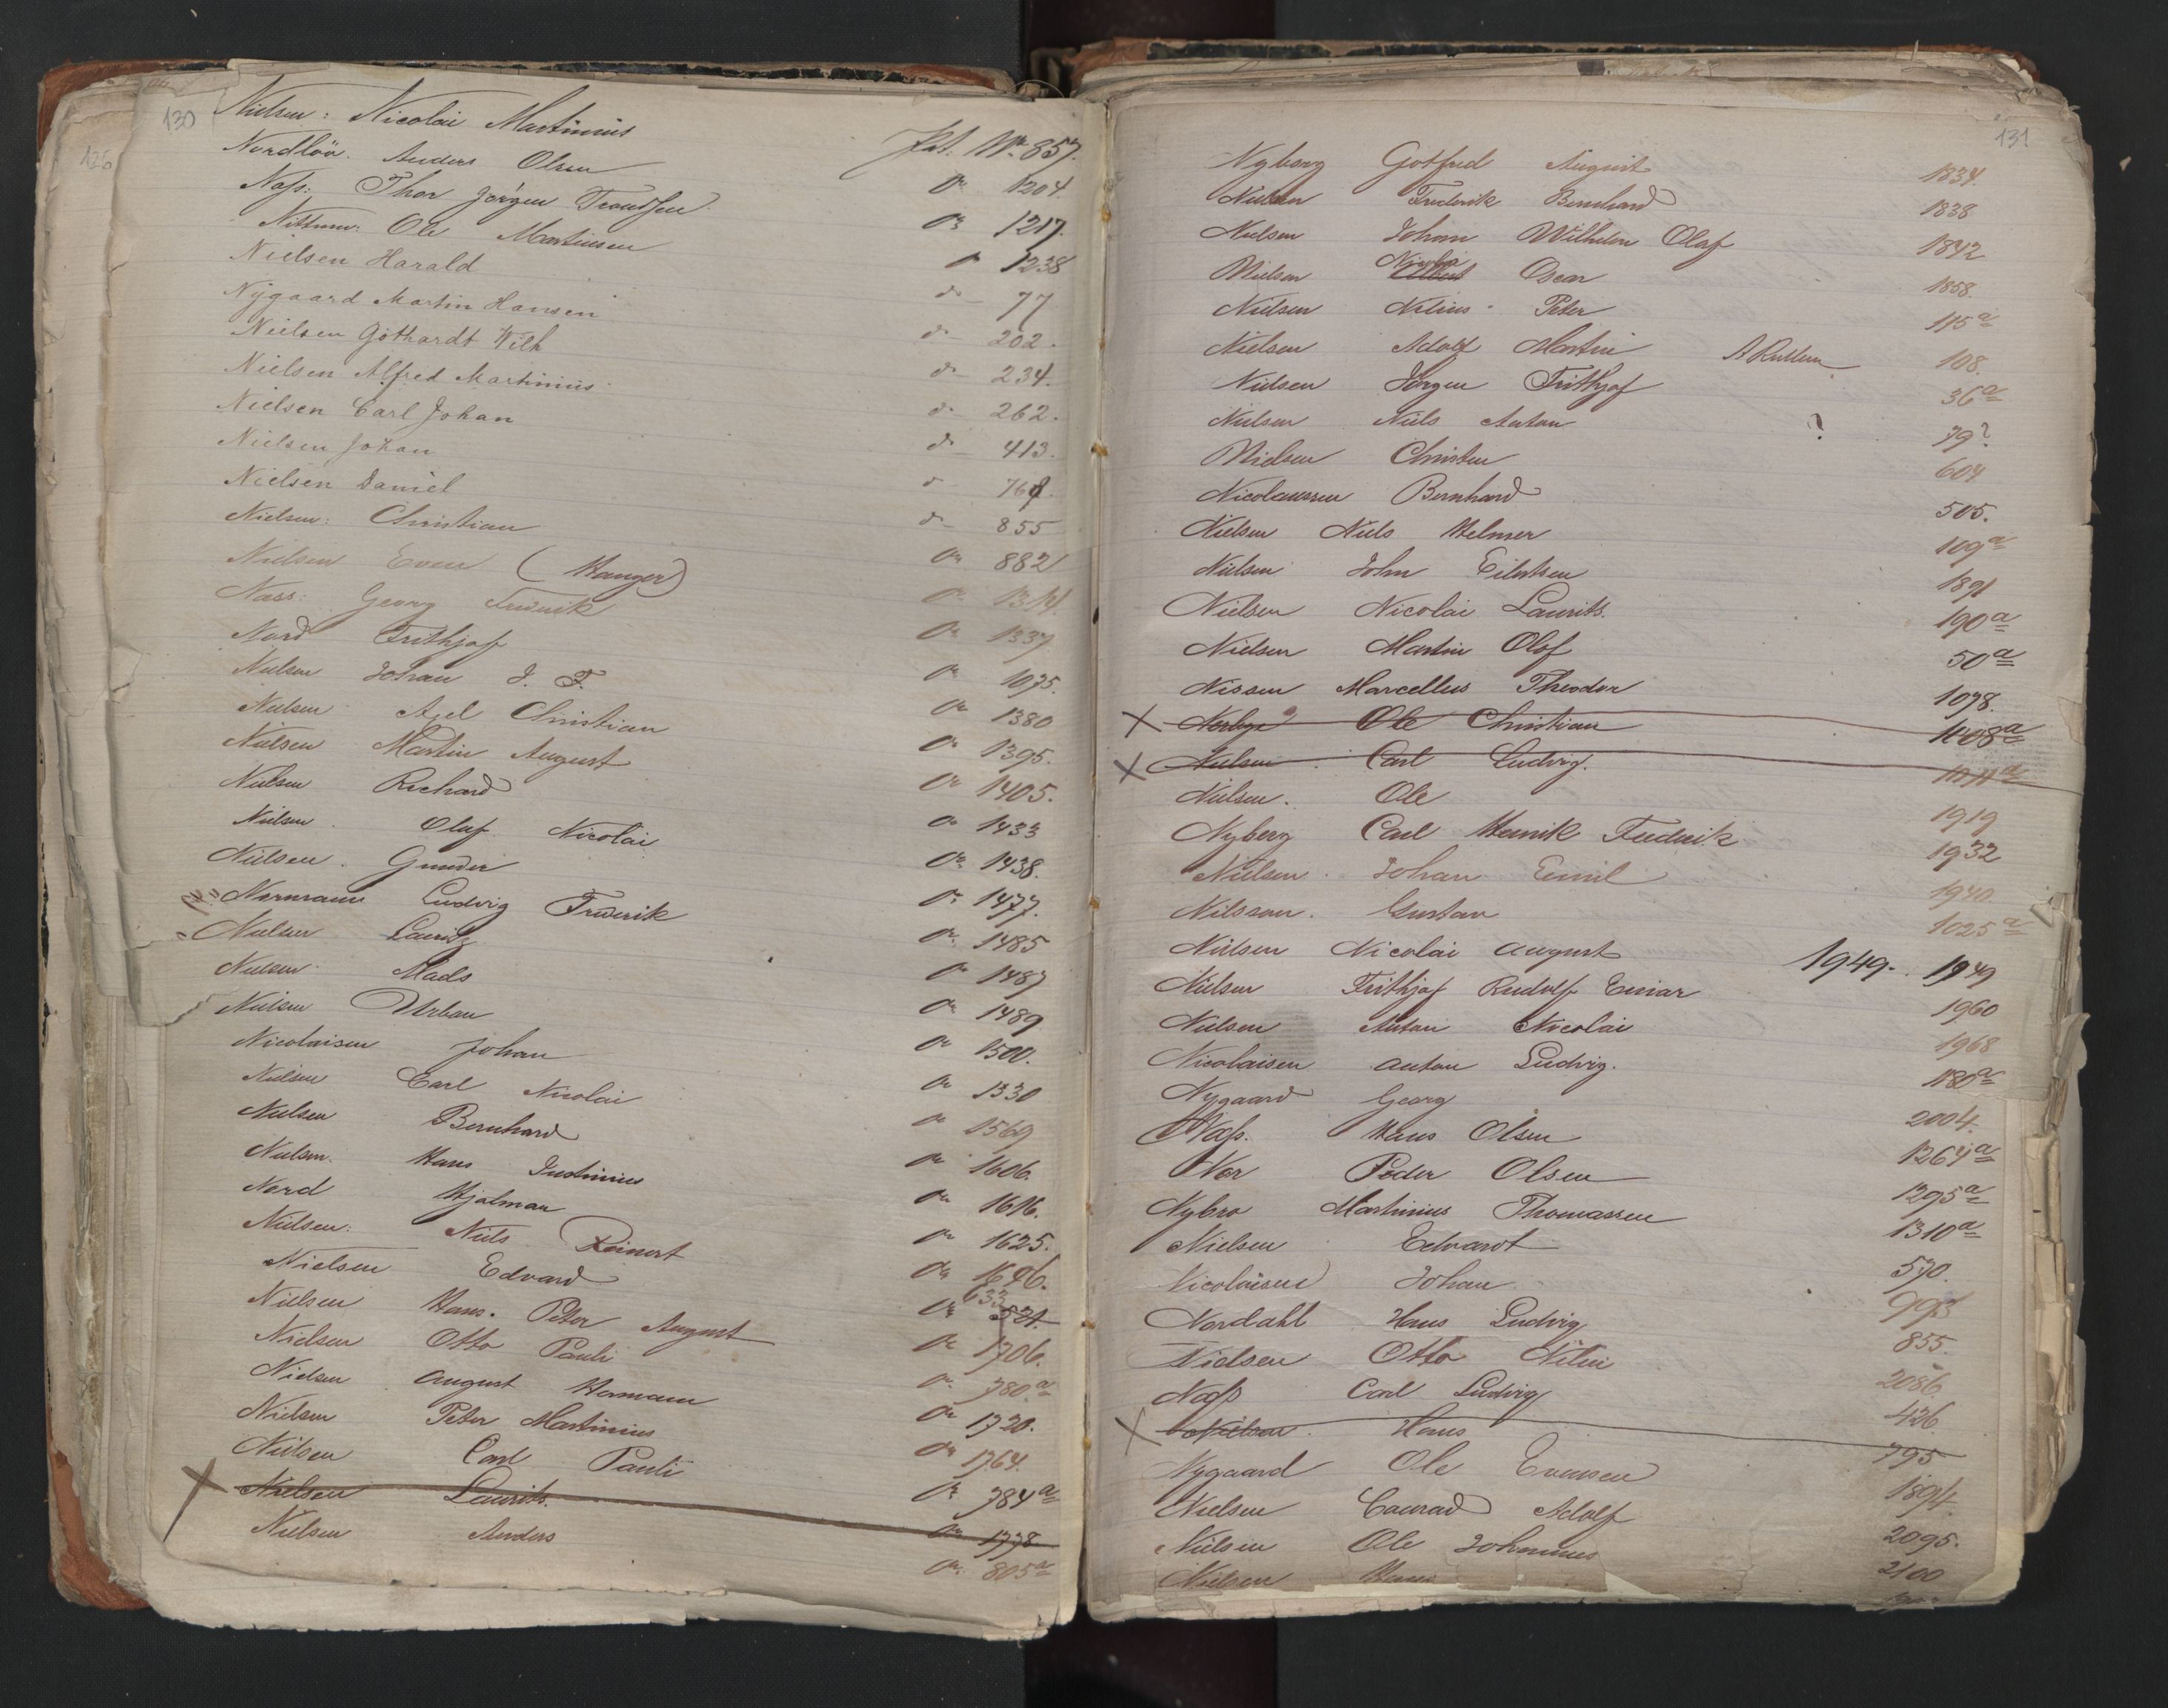 130
Nielsen: Nicolai Martinius Pat. No. 857.
Nordlöv. Anders Olsen do 1204.
Næss: Thor Jörgen Trondsen. do 1217.
Nittum: Ole Martinsen do 1238
Nielsen Harald do 77
Nÿgaard Martin Hansen do 202.
Nielsen Gothardt Wilh do 234.
Nielsen Alfred Martinius do 262.
Nielsen Carl Johan do 413.
Nielsen Johan do
Nielsen Daniel do 855
Nielsen: Christian do 882
Nielsen Even (Hanger) do
Næss: Georg Fredrik do 1337
Nord Frithjof do 1075.
Nielsen Johan J. F. do 1380
Nielsen Axel Christian do 1395.
Nielsen Martin August do 1405.
Nielsen Richard do 1433
Nielsen. Oluf Nicolai do 1438.
Nielsen. Gunder do 1477.
Normann Ludvig Fredrik do 1485
Nielsen Lauritz do 1487
Nielsen Mads do 1489
Nielsen Urban do 1500.
Nicolaisen Johan do 1330
Nielsen Carl Nicolai do 1569
Nielsen Bernhard do 1606.
Nielsen. Hans Justinius do 1616.
Nord Hjalmar do 1625.
Nielsen: Niels Reinert do
Nielsen Edvard do 633 524.
Nielsen Hans. Peter August do 1706.
Nielsen Otto Pauli do 780 a
Nielsen August Hermann do 1720.
Nielsen Peter Martinius do 1764.
Nielsen Carl Pauli do 784 a
X Nielsen Laurits. do 1778
Nielsen Anders do 805 a
131
Nyborg Gotfred August 1834.
Nielsen Frederik Bernhard 1838
Nielsen Johan Wilhelm Olaf 1842
Nielsen Nicolai Oscar 1858.
Nielsen Nilius Peter 115 a
Nielsen Adolf Martin 108.
Nielsen Jörgen Frithjof 36 a
Nielsen Niels Anton ? 79?
Nielsen Christen 604
Nicolaussen Bernhard 505.
Nielsen Niels Helmer 109 a
Nielsen John Eilertsen 1891
Nielsen Nicolai Laurits. 190 a
Nielsen Martin Olof 50 a
Nissen Marcellus Theodor 1078.
X Ole Christian 1108 a
X Nielsen Carl Ludvig.
Nielsen. Ole 1919
Nyberg Carl Henrik Fredrik 1932
Nielsen. Johan Emil 1940.
Nilsson. Gustav 1025 a
Nielsen Nicolai August 1949. 1949
Nielsen Frithjof Rudolf Einar 1960
Nielsen Anton Nicolai 1968
Nicolaisen Anton Ludvig. 1180 a
Nygaard Georg 2004.
Næss. Hans Olsen 1264 a
Nor Peder Olsen 1295 a
Nybro Martinius Thomassen 1310 a
Nielsen Edvardt 570.
Nicolaisen Johan
Nordahl Hans Ludvig 855.
Nielsen Otto 2086.
Næss Carl Ludvig 436.
X Nielsen. Hans 795
Nygaard Ole Evensen 1894.
Nielsen Conrad Adolf 2095.
Nielsen Ole Johannes 2100
Nielsen Hans